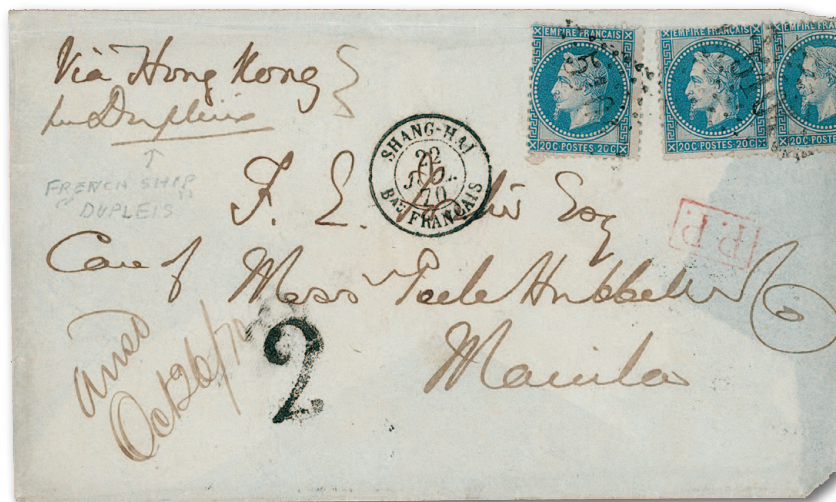 Via Hong Kong
per Dupleix
FRENCH SHIP
"DUPLEIS"
EMPIRE FRANÇAIS
20C POSTES 20C
EMPIRE FRANÇAIS
20C POSTES 20C
EMPIRE FRANÇAIS
20C POSTES 20
SHANG-HAI
22
70
BAU FRANÇAIS
P.P.
F. E. Esq
Care of Mess Peele Hubbell
Manila
2
ansd
Oct 26/70